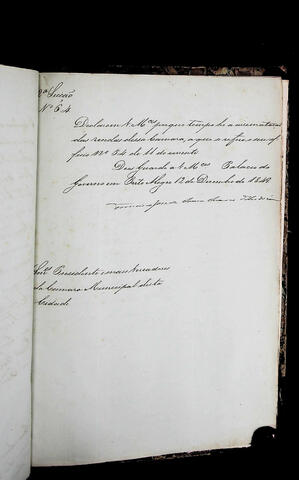 2ª Secção
Nº 64
Declarem V. Mces por que tempo he a arrematação
das rendas dessa Camara, a que se refere seu of-
ficio nº 54 de 11 do corrente.
Deos Guarde a V. Mces Palacio do
Governo em Porto Alegre 12 de Dezembro de 1849
Senrs Presidente e mais Vereadores
da Camara Municipal desta
Cidade